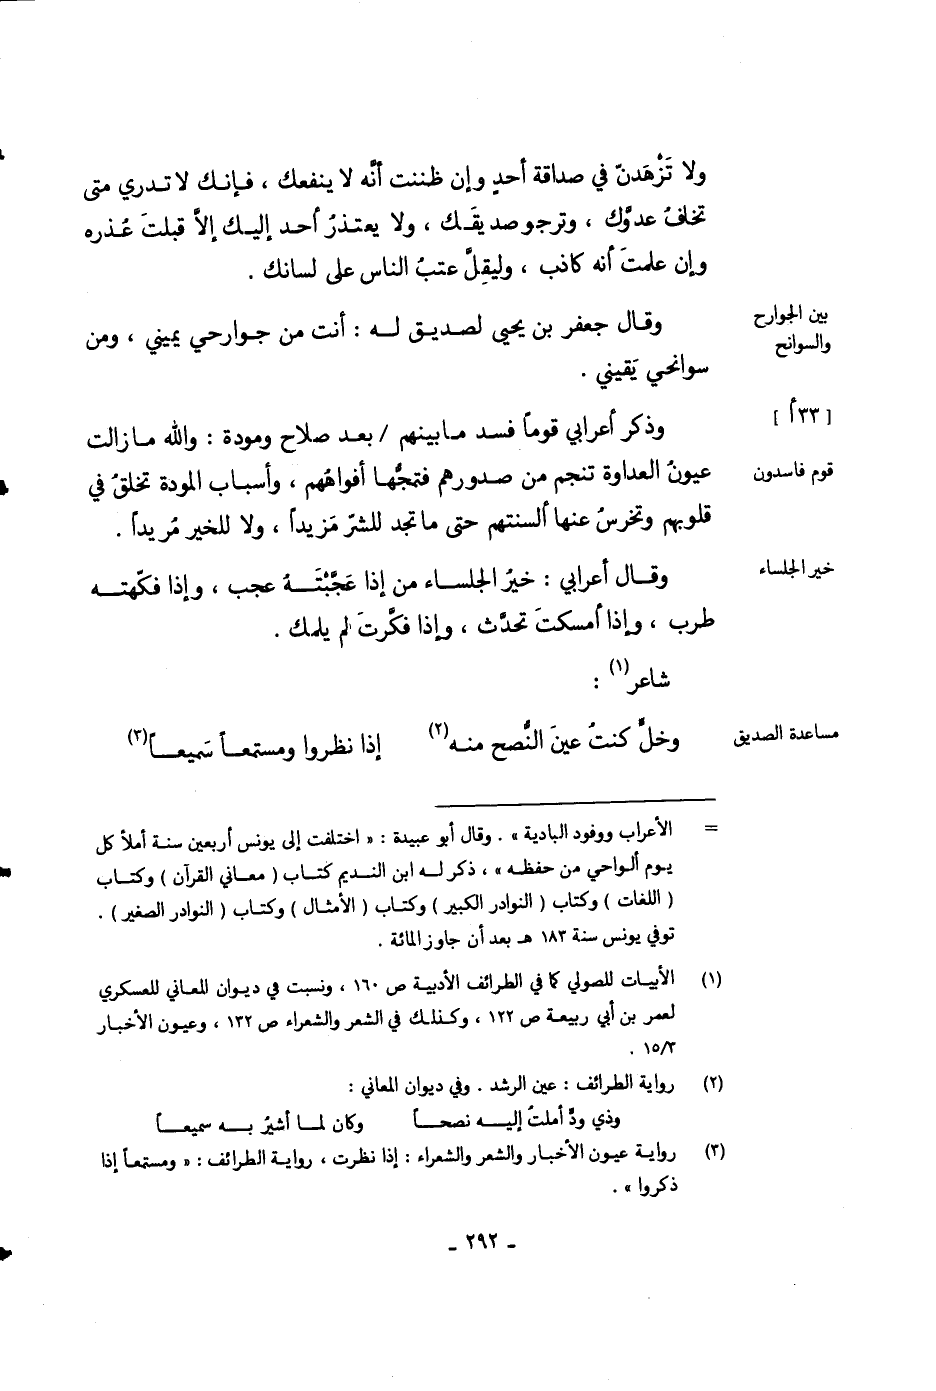 ولا تَزْهَدنّ في صداقة أحدٍ وإن ظننت أنَّه لا ينفعك ، فإنك لا تدري متى
تخافُ عدوَّك ، وترجو صديقَك ، ولا يعتذرُ أحد إليك إلاَّ قبلتَ عُذره
وإن علمتَ أنه كاذب ، وليقلَّ عتبُ الناس على لسانك .
بين الجوارح
والسوانح
وقال جعفر بن يحيى لصديق له : أنت من جوارحي يميني ، ومن
سوانحي يَقيني .
[ ٣٣أ ]
وذكر أعرابي قوماً فسد مابينهم / بعد صلاح ومودة : والله مازالت
قوم فاسدون
عيونُ العداوة تنجم من صدورهم فتمجُّها أفواهُهم ، وأسباب المودة تخلقُ في
قلوبهم وتخرسُ عنها ألسنتهم حتى ماتجد للشرّ مَزيداً ، ولا للخير مُريداً .
خير الجلساء
وقال أعرابي : خيرُ الجلساء من إذا عَجَّبْتَهُ عجب ، وإذا فكّهته
طرب ، وإذا أمسكتَ تحدَّث ، وإذا فكَّرتَ لم يلمك .
شاعر(١) :
مساعدة الصديق
وخلٍّ كنتُ عينَ النُّصح منه(٢) إذا نظروا ومستمعاً سَميعاً(٣)
= الأعراب ووفود البادية » . وقال أبو عبيدة : « اختلفت إلى يونس أربعين سنة أملأ كل
يوم ألواحي من حفظه » ، ذكر له ابن النديم كتاب ( معاني القرآن ) وكتاب
( اللغات ) وكتاب ( النوادر الكبير ) وكتاب ( الأمثال ) وكتاب ( النوادر الصغير ) .
توفي يونس سنة ١٨٣ هـ بعد أن جاوز المائة .
(١) الأبيات للصولي كما في الطرائف الأدبية ص ١٦٠ ، ونسبت في ديوان المعاني للعسكري
لعمر بن أبي ربيعة ص ١٢٢ ، وكذلك في الشعر والشعراء ص ١٣٢ ، وعيون الأخبار
١٥/٣ .
(٢) رواية الطرائف : عين الرشد . وفي ديوان المعاني :
وذي ودٍّ أملتُ إليه نصحاً وكان لما أشيرُ به سميعاً
(٣) رواية عيون الأخبار والشعر والشعراء : إذا نظرت ، رواية الطرائف : « ومستمعاً إذا
ذكروا » .
ـ ٢٩٢ ـ